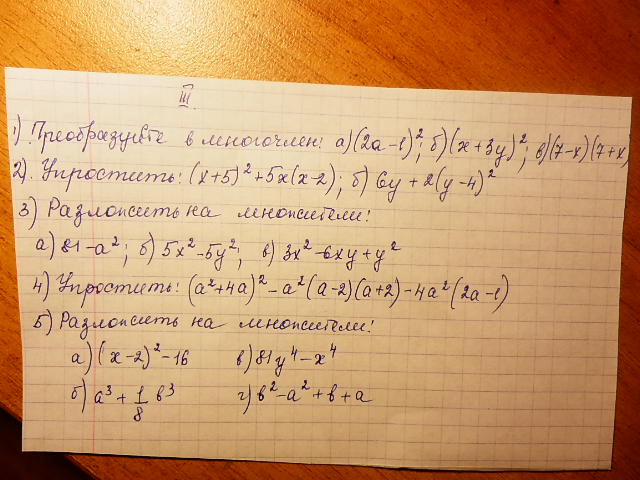 III
1) Преобразуйте в многочлен: а) (2a-1)²; б) (x+3y)²; в) (7-x)(7+x)
2). Упростить: (x+5)²+5x(x-2); б) 6y+2(y-4)²
3) Разложить на множители:
а) 81-a²; б) 5x²-5y²; в) 3x²-6xy+y²
4) Упростить: (a²+4a)²-a²(a-2)(a+2)-4a²(2a-1)
5) Разложить на множители:
а) (x-2)²-16 в) 81y⁴-x⁴
б) a³+1/8 b³ г) b²-a²+b+a